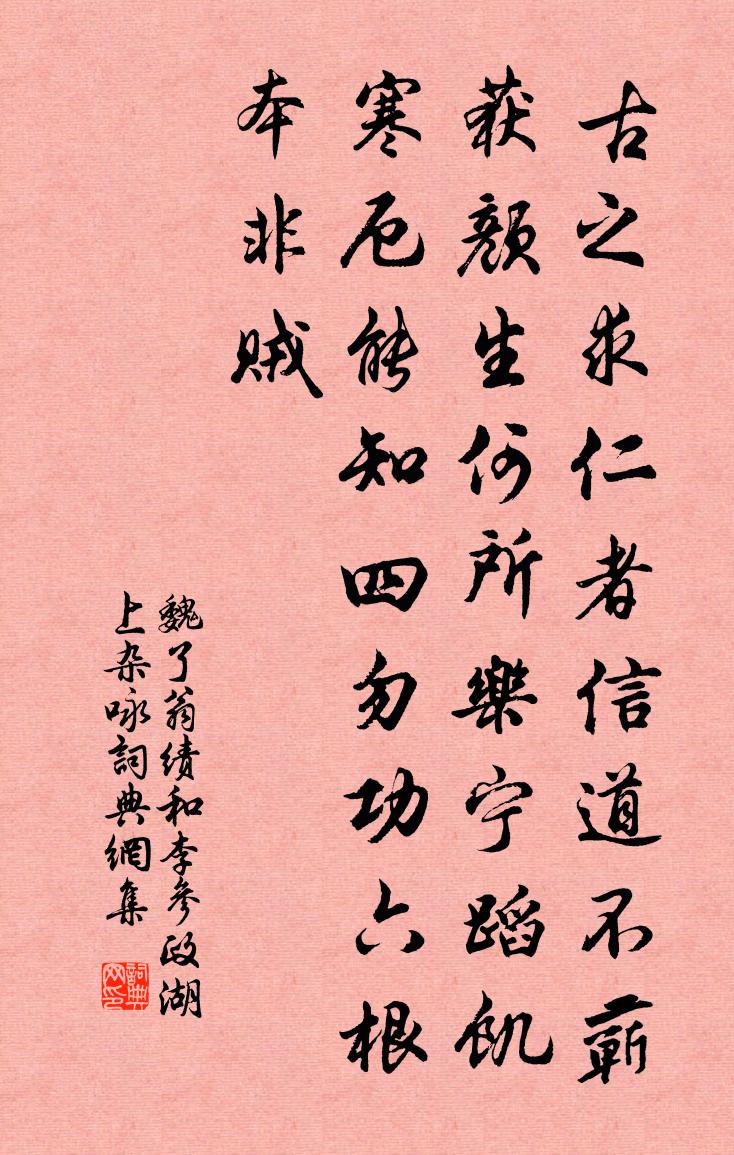 古之求仁者信道不蕲
获颜生何所樂宁蹈飢
寒厄能知四勿功六根
本非贼
魏了翁續和李參政湖
上杂咏詞典網集
詞典网印